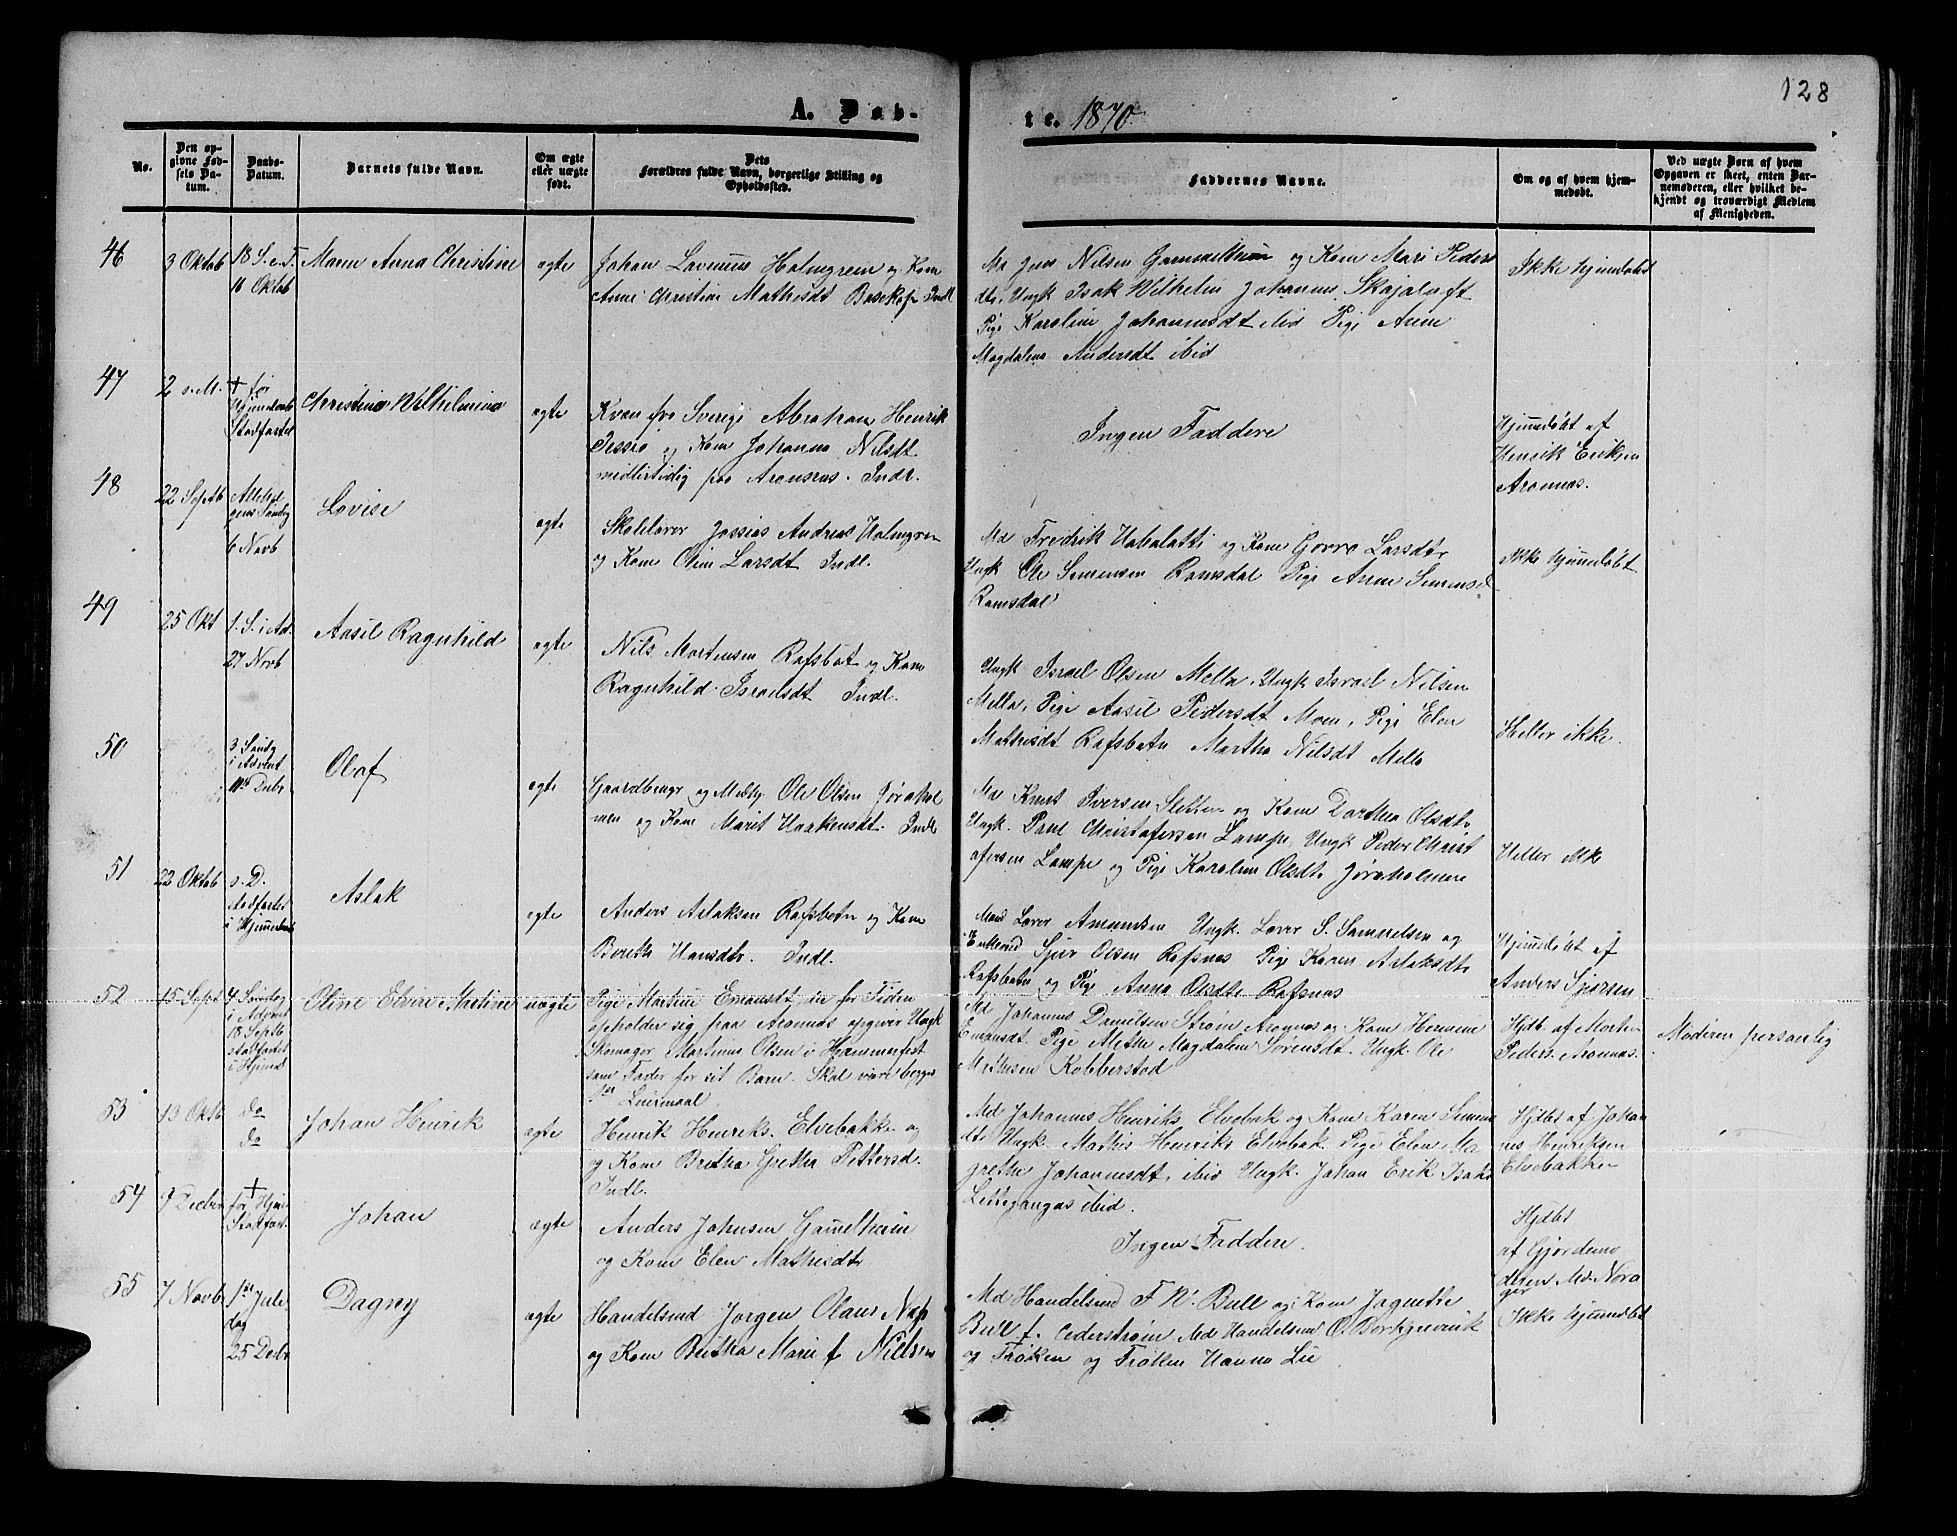 128
A. Døbte. 1870
No.
Den opgivne Fødsels Datum.
Daabs-Datum.
Barnets fulde Navn.
Om ægte eller uægte født.
Dets Forældres fulde Navn, borgerlige Stilling og Opholdssted.
Faddernes Navne.
Om og af hvem hjemmedøbt.
Ved uægte Børn af hvem Opgaven er skeet, enten Barnemoderen, eller hvilket bekjendt og troværdigt Medlem af Menigheden.
46
3 Oktob
18 S. e. T.
16 Oktob
Maren Anna Christine
ægte
Johan Lavinus Holmgren og Kone
Anne Christine Mathisdt Bosekop Indl
Md Jens Nilsen Gammelheim og Kone Mari Peders
dtr, Ungk Isak Wilhelm Johannes Skojaluft
Pige Karoline Johannesdt ibid Pige Anne
Magdalena Andersdt ibid
Ikke hjemdøbt
47
2 s. M.
† før
Hjemdaab
Stadfæstet
Christina Wilhelmina
ægte
Kvæn fra Sverige Abraham Henrik
Pessio og Kone Johanna Nilsdt
midlertidig paa Aronsnes. Indl.
Ingen Faddere
Hjemdøbt af
Henrik Eriksen
Aronnæs.
48
22 Septb
Allehel
gens Søndg
6 Novb
Lovise
ægte
Skolelærer Jossias Andreas Holmgren
og Kone Oline Larsdt Indl.
Md Fredrik Uabalatti og Kone Gorro Larsdtr
Ungk Ole Simonsen Ramsdal Pige Anne Simonsd
Ramsdal
Ikke hjemdøbt
49
25 Okt
1. S. i Ad.
27 Novb
Aasil Ragnhild
ægte
Nils Mortensen Rafsbot og Kone
Ragnhild Israelsdt Indl.
Ungk Israel Olsen Mella, Ungk Israel Nilsen
Mella, Pige Aasil Pedersdt Moen, Pige Elen
Mathisdt Rafsbotn Martha Nilsdt Mella
Heller ikke.
50
3 Søndg
i Advent
11te Debr
Olaf
ægte
Gaardbrugr og Medhj Ole Olsen Jørahol
men og Kone Marit Haakensdt. Indl
Md Knut Iversen Sletten og Kone Dorthea Olsdtr
Ungk. Paul Christofersen Lampe, Ungk Peder Christ
ofersen Lampe og Pige Karoline Olsdtr Jøraholmene
Heller ikke
51
22 Oktob
s. D.
stadfæstet
i Hjemdaab
Aslak
ægte
Anders Aslaksen Rafsbotn og Kone
Berethe Hansdtr. Indl.
Mand Lærer Amundsen Ungk. Lærer S. Samuelsen og
Enkemd Sjur Olsen Rafsnæs Pige Karen Aslaksdtr
Rafsbotn og Pige Anna Olsdtr Rafsnæs
Hjemdøbt af
Anders Sjursen
52
15 Sept
4 Søndg
i Advent
18 Septb
stadfæstet
i Hjemd
Oline Elvine Martine
uægte
Pige Martine Emansdt, der for Tiden
opholder sig paa Aronnæs opgiver Ungk
Skomager Martinus Olsen i Hammerfest
som Fader for sit Barn. Skal være begges
1ste Leiermaal.
Md Johannes Danielsen Strøm Aronnæs og Kone Hermine
Emansdt. Pige Alethe Magdalene Sørensdt. Ungk. Ole
Mathisen Kobberstad
Hjdb. af Morten
Peders. Aronnæs.
Moderen personlig
53
13 Oktb
do
do
Johan Henrik
ægte
Henrik Henriks. Elvebakke og
og Kone Britha Gretha Pettersd.
Indl.
Md Johannes Henriks. Elvebak og Kone Karen Simons
dtr Ungk. Mathis Henriks Elvebak Pige Elen Ma
grethe Johannesdt, ibid Ungk. Johan Erik Isaks
Littigangas ibid.
Hjdbt af Johan
nes Henriksen
Elvebakken
54
9 Decbr
†
før Hjm
Stadfæst.
Johan
ægte
Anders Johnsen Gamelheim
og Kone Elen Mathisdtr
Ingen Faddere.
Hjdbt
af Gjordemo
deren Md. Nora
ger
55
7 Novb
1ste Jule
dag
25 Debr
Dagny
ægte
Handelsmd Jørgen Olaus Næss
og Kone Britha Marie f. Nielsen
Md Handelsmd F W. Bull og Kone Jagnethe
Bull f. Cederstrøm Md Handelsmd O. Borkgrevink
og Frøken og Frøken Hanna Lie
Ikke hjemdøbt